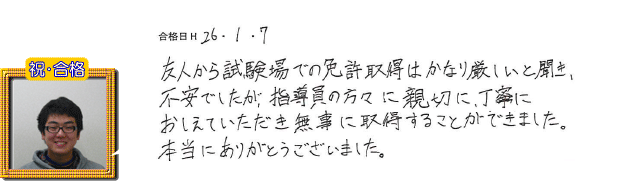 合格日H 26・1・7
祝・合格
友人から試験場での免許取得はかなり厳しいと聞き、
不安でしたが、指導員の方々に親切に、丁寧に
おしえていただき無事に取得することができました。
本当にありがとうございました。